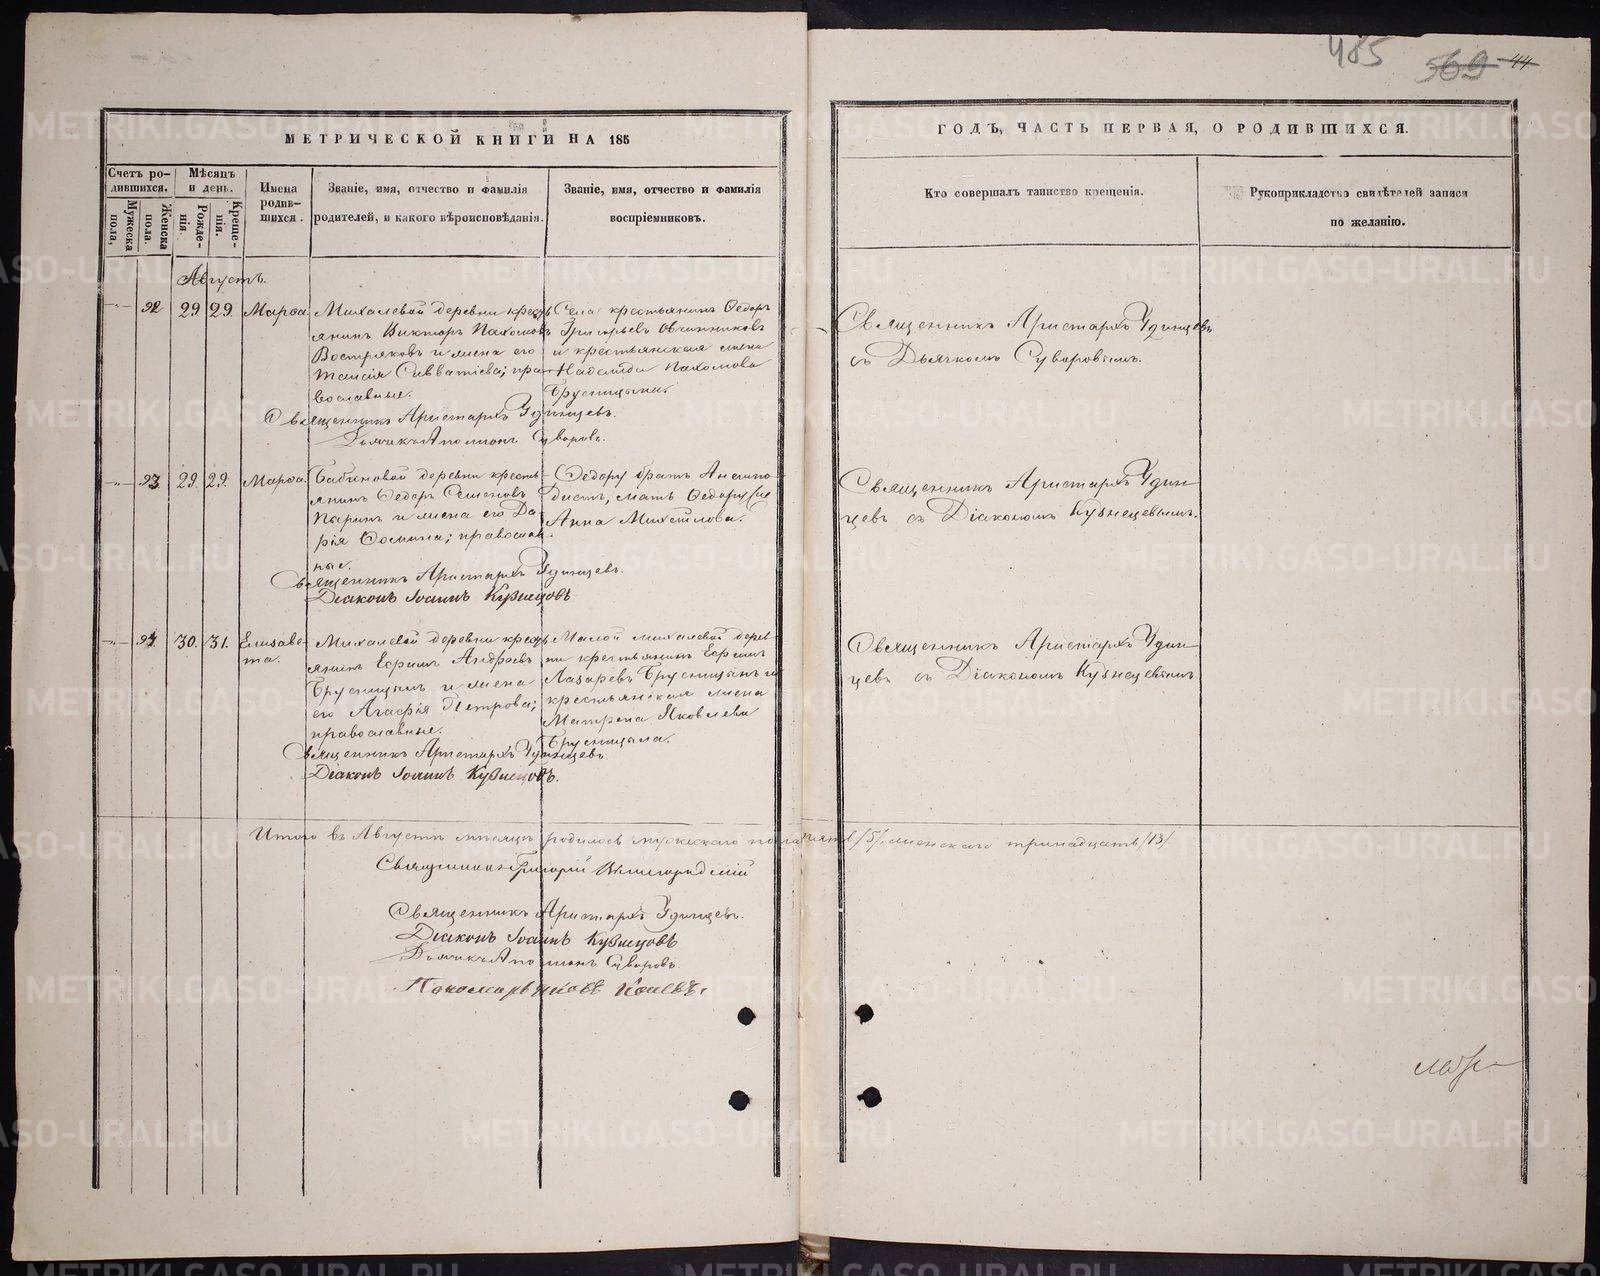 485 569 44
МЕТРИЧЕСКОЙ КНИГИ НА 185
ГОДЪ, ЧАСТЬ ПЕРВАЯ, О РОДИВШИХСЯ.
Счетъ ро-
дившихся.
Мужеска
пола,
Женска
пола.
Мѣсяцъ
и день.
Рожде-
нія.
Креще-
нія.
Имена
родив-
шихся.
Званіе, имя, отчество и фамилія
родителей, и какого вѣроисповѣданія.
Званіе, имя, отчество и фамилія
воспріемниковъ.
Кто совершалъ таинство крещенія.
Рукоприкладство свидѣтелей записи
по желанію.
Августъ.
92 29 29 Марѳа
Михалевой деревни кресть
янинъ Викторъ Пахомовъ
Востряковъ и жена его
Таисія Савватіева; пра-
вославные.
Села крестьянинъ Ѳедоръ
Григорьевъ Овчинниковъ
и крестьянская жена
Надежда Пахомова
Брусницына.
Священникъ Аристархъ Удинцевъ
съ Дьячкомъ Суворовымъ.
Священникъ Аристархъ Удинцевъ.
Дьячекъ Аполлонъ Суворовъ.
93. 29. 29. Марѳа.
Бабиновой деревни кресть
янинъ Ѳедоръ Семеновъ
и жена его Да
рія Ѳомина; православ
ные.
Ѳедору братъ
мать Ѳедору
Анна
Священникъ Аристархъ Удин
цевъ съ Діакономъ Кузнецовымъ.
Священникъ Аристархъ Удинцевъ.
Діаконъ Іоаннъ Кузнецовъ
94. 30. 31. Елисаве-
та.
Михалевой деревни кресть
янинъ Ефримъ Андреевъ
Брусницынъ и жена
его Агафія Петрова;
православные.
Малой Михалевой дерев-
ни крестьянинъ Ефримъ
Лазаревъ Брусницынъ и
крестьянская жена
Матрена Яковлева
Брусницына.
Священникъ Аристархъ Удин
цевъ съ Діакономъ Кузнецовымъ
Священникъ Аристархъ Удинцевъ
Діаконъ Іоаннъ Кузнецовъ.
Итого въ Августѣ мѣсяцѣ родилось мужескаго пола пять /5/. женскаго тринадцать /13/
Священникъ Григорій
Священникъ Аристархъ Удинцевъ.
Діаконъ Іоаннъ Кузнецовъ
Дьячекъ Аполлонъ Суворовъ.
Пономарь Яковъ